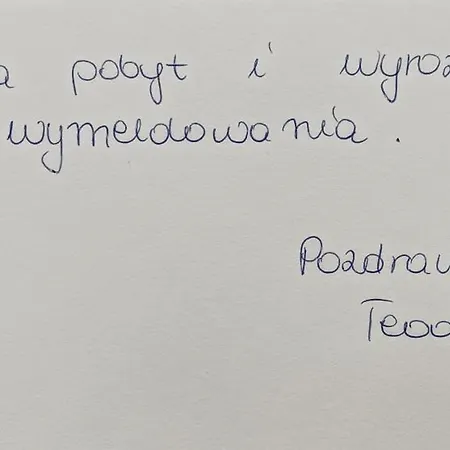 a pobyt i wyroz
wymeldowania.
Pozdraw
Teod